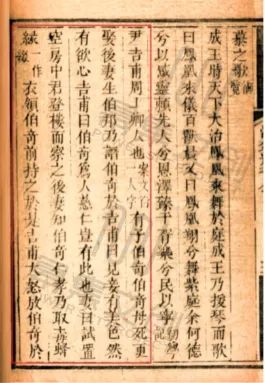 慕之歌御覽
成王時天下大治鳳凰來舞於庭成王乃援琴而歌
曰鳳凰來儀百獸晨又曰鳳凰翔兮舞紫庭余何德
兮以感靈賴先人兮恩澤臻于胥樂兮民以寧初學記
尹吉甫周上卿人也案文人字有子伯奇伯奇母死更
娶後妻生伯邦乃譖伯奇於吉甫曰見妾有美色然
有欲心吉甫曰伯奇爲人慈仁豈有此也妻曰試置
空房中君登樓而察之後妻知伯奇仁孝乃取毒蜂
緣一作綴衣領伯奇前持之於是吉甫大怒放伯奇於